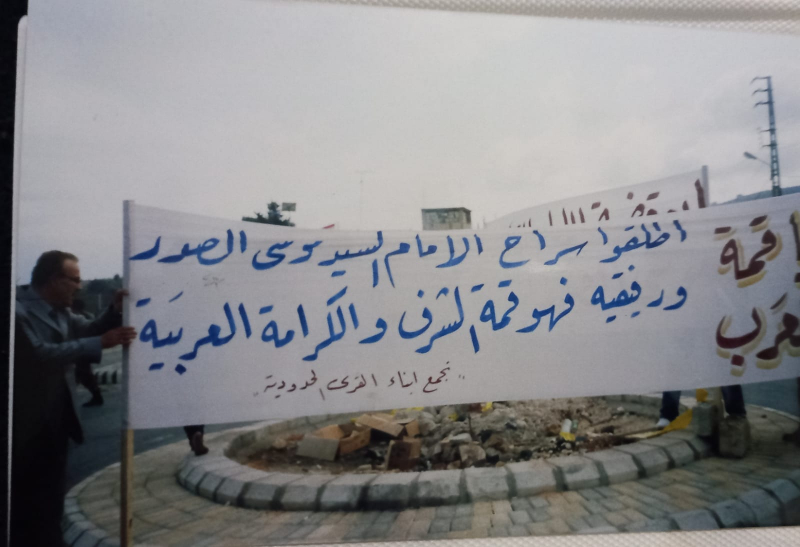 أطلقوا سراح الامام السيد موسى الصدر
ورفيقيه فهو قمة الشرف والكرامة العربية
"تجمع ابناء القرى الحدودية"
قمة
العرب